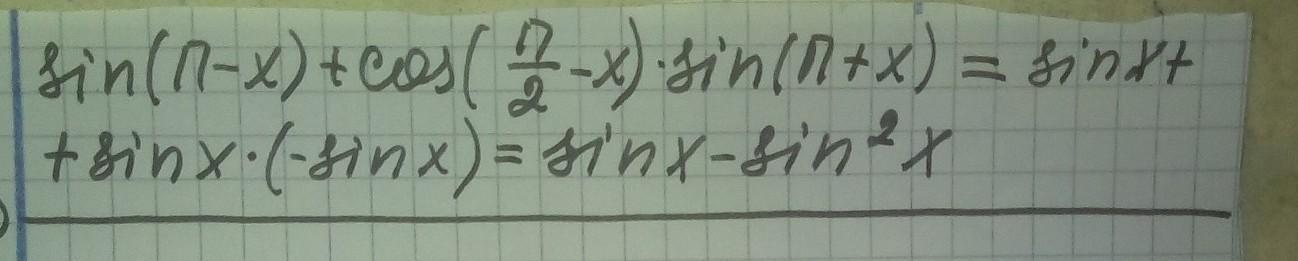 sin(π-x)+cos(π/2-x)·sin(π+x)=sinx+
+sinx·(-sinx)=sinx-sin²x